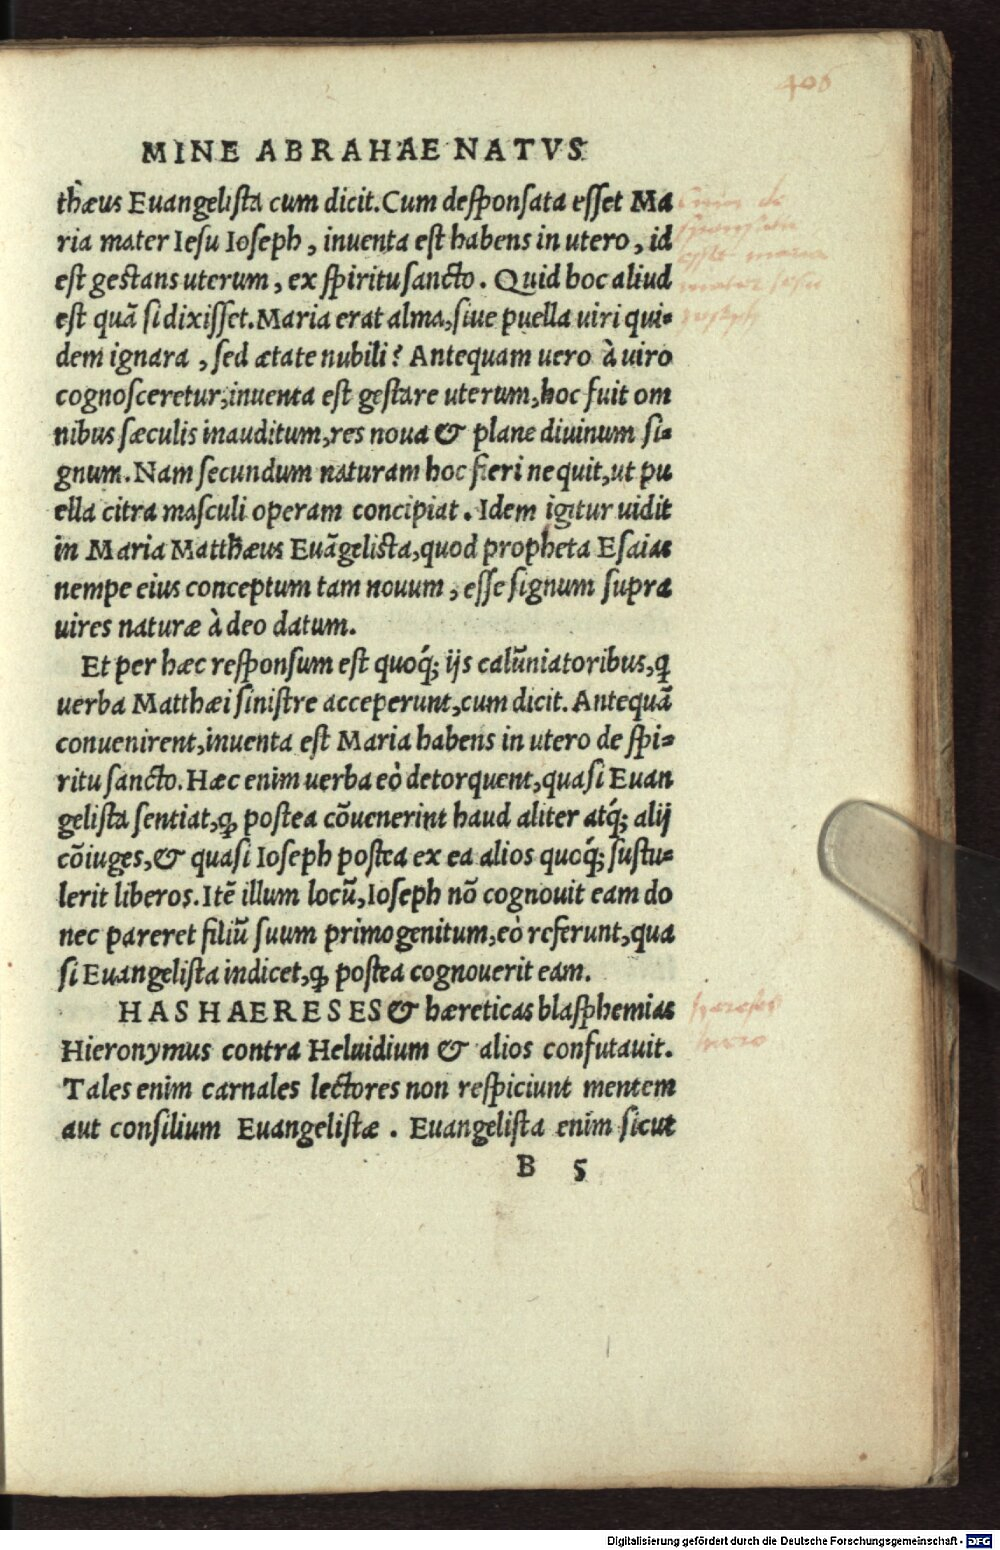 406
MINE ABRAHAE NATVS
thæus Euangelista cum dicit. Cum desponsata esset Ma
ria mater Iesu Ioseph, inuenta est habens in utero, id
est gestans uterum, ex spiritu sancto. Quid hoc aliud
est quã si dixisset. Maria erat alma, siue puella uiri qui-
dem ignara, sed ætate nubili? Antequam uero à uiro
cognosceretur, inuenta est gestare uterum, hoc fuit om
nibus sæculis inauditum, res noua & plane diuinum si-
gnum. Nam secundum naturam hoc fieri nequit, ut pu
ella citra masculi operam concipiat. Idem igitur uidit
in Maria Matthæus Euãgelista, quod propheta Esaias
nempe eius conceptum tam nouum, esse signum supra
uires naturæ à deo datum.
Et per hæc responsum est quoq́; ijs calũniatoribus, ꝗ
uerba Matthæi sinistre acceperunt, cum dicit. Antequã
conuenirent, inuenta est Maria habens in utero de spi-
ritu sancto. Hæc enim uerba eò detorquent, quasi Euan
gelista sentiat, ꝙ postea cõuenerint haud aliter atq́; alij
cõiuges, & quasi Ioseph postea ex ea alios quoq́; sustu-
lerit liberos. Itẽ illum locũ, Ioseph nõ cognouit eam do
nec pareret filiũ suum primogenitum, eò referunt, qua
si Euangelista indicet, ꝙ postea cognouerit eam.
HAS HAERESES & hæreticas blasphemias
Hieronymus contra Heluidium & alios confutauit.
Tales enim carnales lectores non respiciunt mentem
aut consilium Euangelistæ. Euangelista enim sicut
B 5
Digitalisierung gefördert durch die Deutsche Forschungsgemeinschaft - DFG